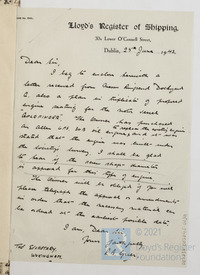 Lloyd's Register of Shipping,
30a Lower O'Connell Street,
Dublin, 25th June 1942
Dear Sir,
I beg to enclose herewith a
letter received from Messrs Ringsend Dockyard
C°, also a plan in triplicate of proposed
engine seating for the motor vessel
The Owner has purchased
an Allen oil engine, and
states that the engine was built under
the Society's Survey, I shall be glad
to hear if the scantlings shown
is approved for this type of engine.
The owners will be obliged if you will
please telegraph the approval & amendments
in order that the necessary material can
be ordered at the earliest possible date.
I am, Dear Sir,
Yours faithfully
The Secretary,
Wokingham.
© 2021
Lloyd's Register
Foundation